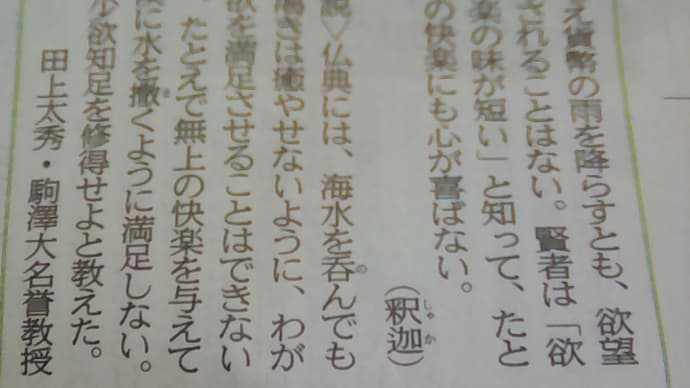 え貨幣の雨を降らすとも、欲望
されることはない。賢者は「欲
楽の味が短い」と知って、たと
の快楽にも心が喜ばない。
（釈迦）
しゃか
説▽仏典には、海水を呑んでも
の
渇きは癒やせないように、わが
欲を満足させることはできない
、たとえで無上の快楽を与えて
に水を撒くように満足しない。
ま
少欲知足を修得せよと教えた。
田上太秀・駒澤大名誉教授